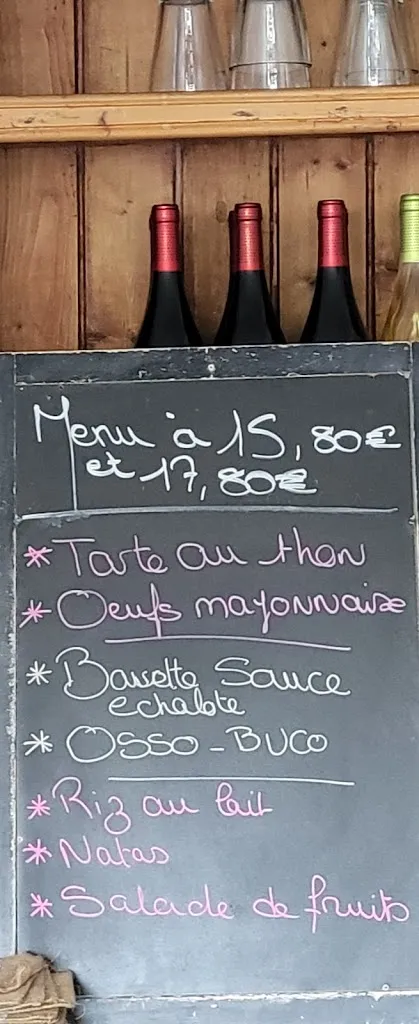 Menu à 15,80€
et 17,80€
* Tarte au thon
* Oeufs mayonnaise
* Bavette Sauce
echalote
* Osso-Buco
* Riz au lait
* Natas
* Salade de fruits